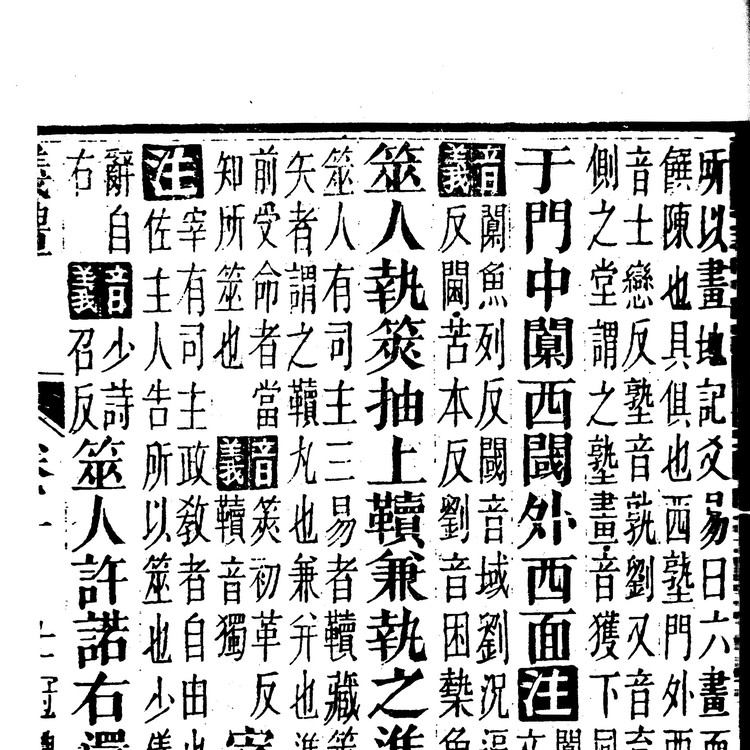 所以畫地記爻易曰六畫而
饌陳也具俱也西塾門外西
音士戀反塾音孰劉又音
側之堂謂之塾畫音獲下同
于門中闑西閾外西面注
音闑魚列反閾音域劉況
義反閫苦本反劉音困槷魚
筮人執筴抽上韇兼執之進
筮人有司主三易者韇藏筴
矢者謂之韇丸也兼并也進
前受命者當音筴初革反
知所筮也義韇音獨
宰
注
宰有司主政教者自由也
佐主人告所以筮也少儀
辭自音少詩
右義召反
筮人許諾右還